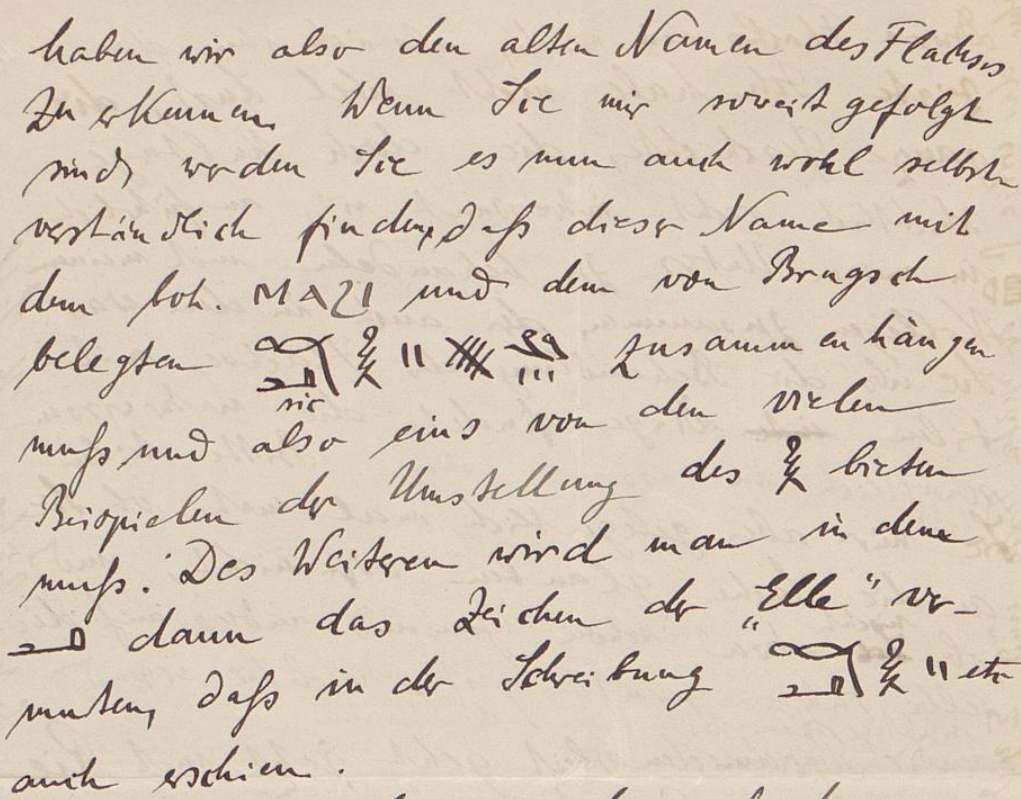 haben wir also den alten Namen des Flachses
zu erkennen. Wenn Sie mir soweit gefolgt
sind, werden Sie es nun auch wohl selbst-
verständlich finden, daß dieser Name mit
dem boh. ⲙⲁϩⲓ und dem von Brugsch
belegten zusammenhängen
sic
muß, und also eins von den vielen
Beispielen der Umstellung des 𓎛 bieten
muß. Des Weiteren wird man in dem
𓂝 dann das Zeichen der „Elle“ ver-
muten, daß in der Schreibung 𓎛 " etc
auch erschien.